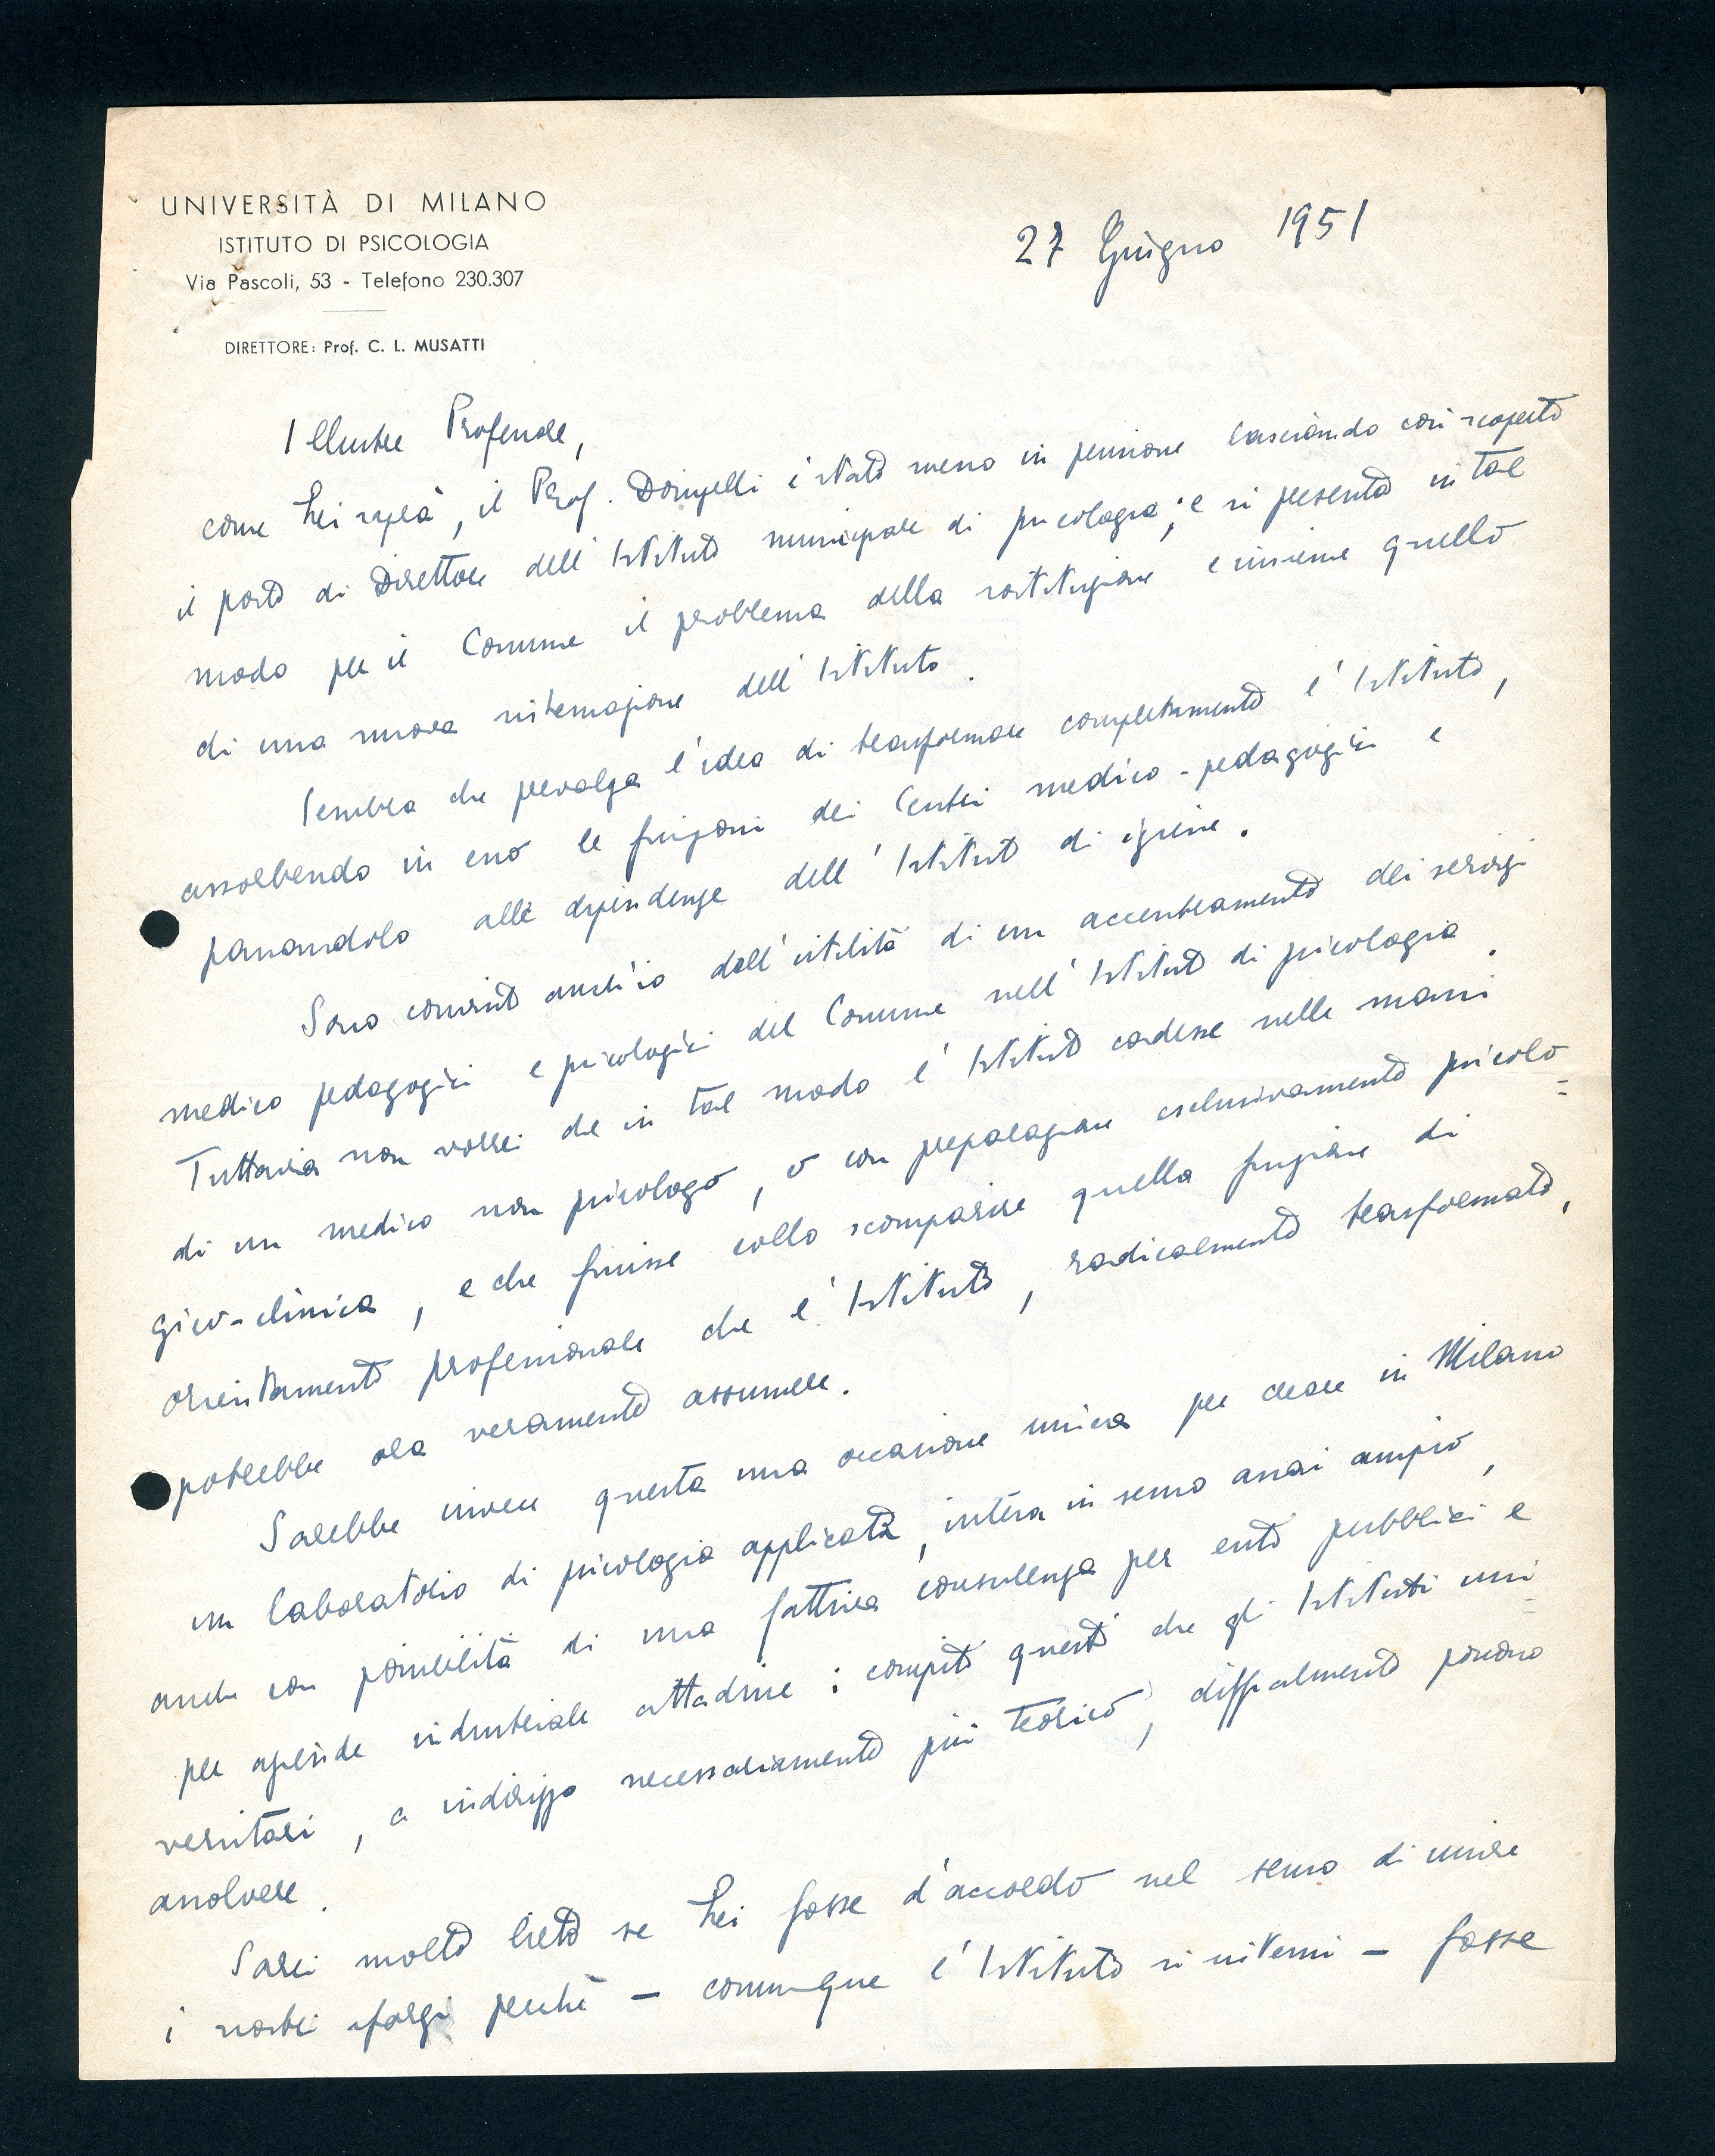 UNIVERSITÀ DI MILANO
ISTITUTO DI PSICOLOGIA
Via Pascoli, 53 - Telefono 230.307
DIRETTORE: Prof. C. L. MUSATTI
27 Giugno 1951
Illustre Professore,
come Lei saprà, il Prof. Doniselli è stato messo in pensione lasciando così scoperto
il posto di Direttore dell'Istituto municipale di psicologia; e si presenta in tal
modo per il Comune il problema della sostituzione e insieme quello
di una nuova sistemazione dell'Istituto.
Sembra che prevalga l'idea di trasformare completamente l'Istituto,
assorbendo in esso le funzioni dei Centri medico-pedagogici e
passandolo alle dipendenze dell'Istituto di igiene.
Sono convinto anch'io dell'utilità di un accentramento dei servizi
medico pedagogici e psicologici del Comune nell'Istituto di psicologia.
Tuttavia non vorrei che in tal modo l'Istituto cadesse nelle mani
di un medico non psicologo, o con preparazione esclusivamente psicolo=
gico-clinica, e che finisse collo scomparire quella funzione di
orientamento professionale che l'Istituto, radicalmente trasformato,
potrebbe ora veramente assumere.
Sarebbe invece questa una occasione unica per creare in Milano
un laboratorio di psicologia applicata, intesa in senso assai ampio,
anche con possibilità di una fattiva consulenza per enti pubblici e
per aziende industriale cittadine: compito questo che gli Istituti uni=
versitari, a indirizzo necessariamente più teorico, difficilmente possono
assolvere.
Sarei molto lieto se Lei fosse d'accordo nel senso di unire
i nostri sforzi perché - comunque l'Istituto si sistemi - fosse